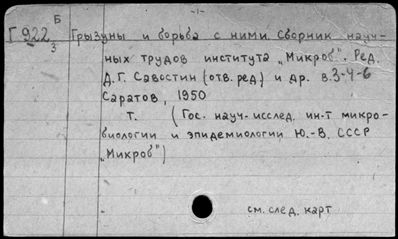 -1-
Г 922 Б
3
Грызуны и борьба с ними. Сборник науч-
ных трудов института „Микроб". Ред.
Д.Г. Савостин (отв. ред) и др. в.3-4-6
Саратов, 1950
т. (Гос. науч-исслед. ин-т микро-
биологии и эпидемиологии Ю.-В. СССР
„Микроб")
см. след. карт